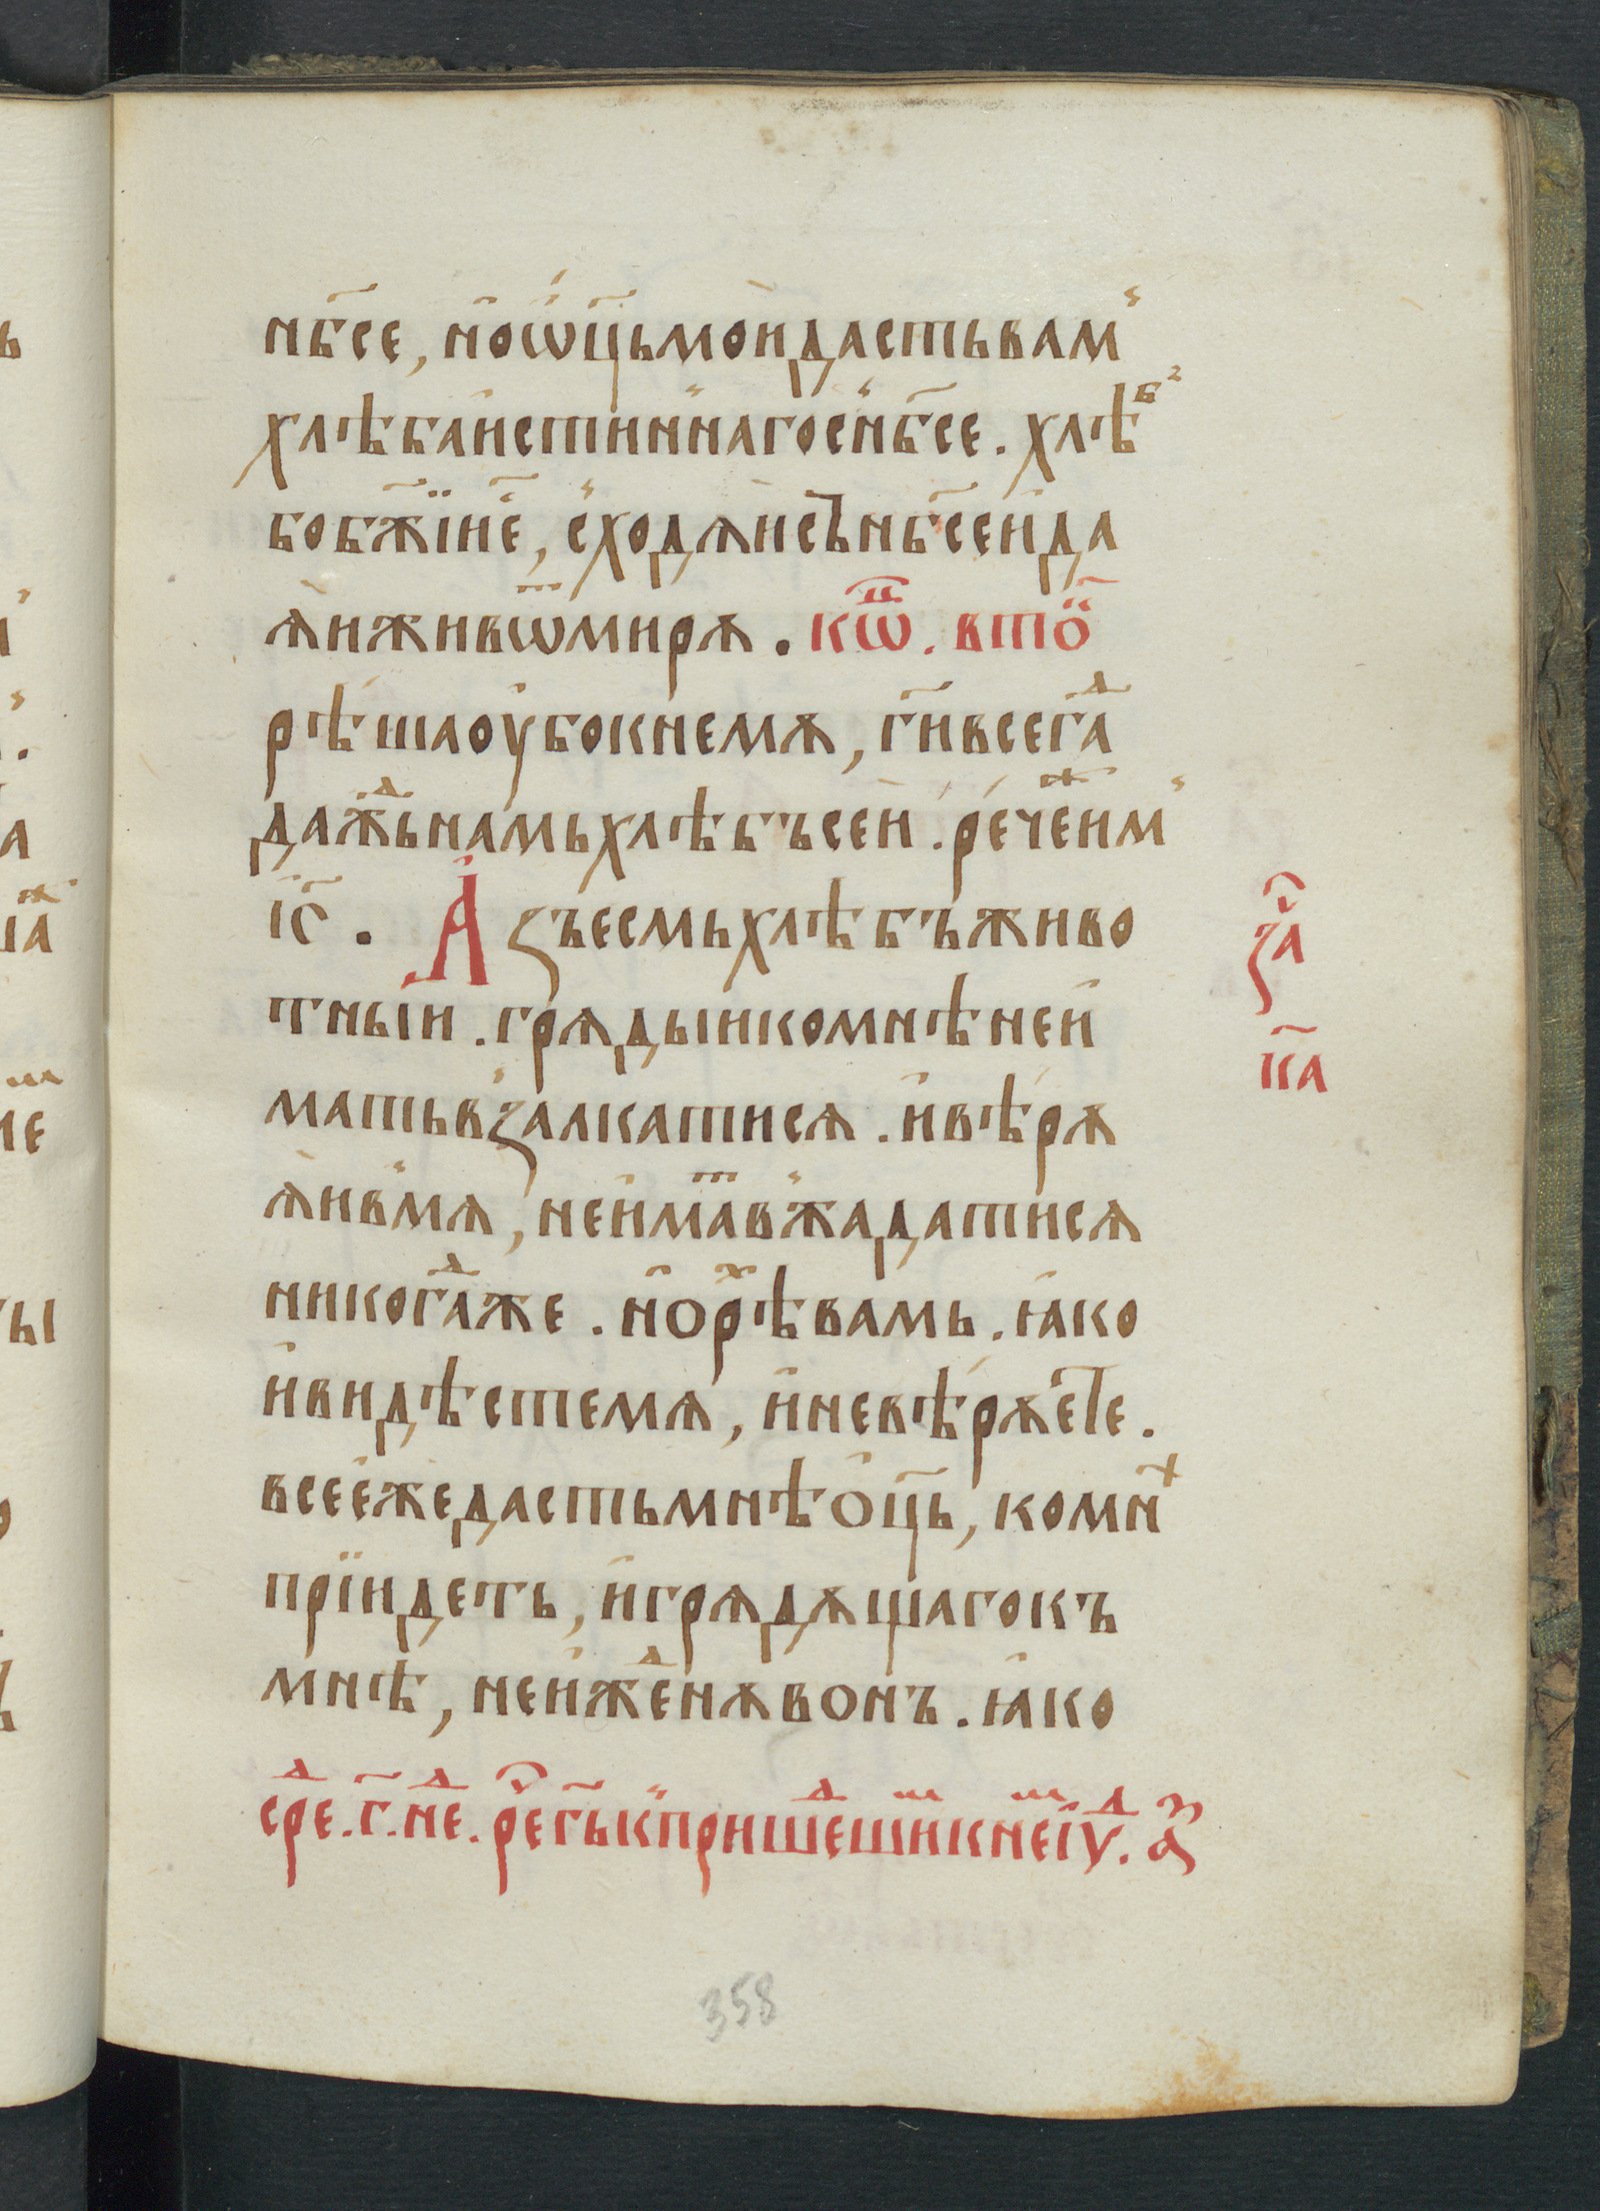 нб҃се, но̑ѿц҃ьмои̑дастьвам
хлѣбаи̑стиннагоснб҃се. хлѣб
бобж҃їине, сходѧисъ̀нб҃сеи̑да
ѧ̀иживѿмирꙗ. кѡ҃п. вто҃
рѣшаоу̑бокнемꙋ, г҃ивсегд̾а
даждьна́мьхлѣбъсеи̑. ре́чежеим
іс҃. Азъесмьхлѣбъживо
тныи. грѧдыикомнѣнеи̑
матьвзалкатисѧ. и̑вѣрꙋ
ѧ̀ивмѧ, неи̑матвжадатисѧ
никогдаже. но̑рѣхвамь. ꙗ̑ко
и̑видѣстемѧ, и̑невѣрꙋете.
всее̑жедастьмнѣо̑ц҃ь, комн
прїидеть, и̑грѧдꙋщагокъ
мнѣ, неи̑жденꙋвонъ. ꙗ̑ко
сред. г҃. нед. реч гь҃кпришедшимкнемꙋіуд. аз
за
к҃а
358